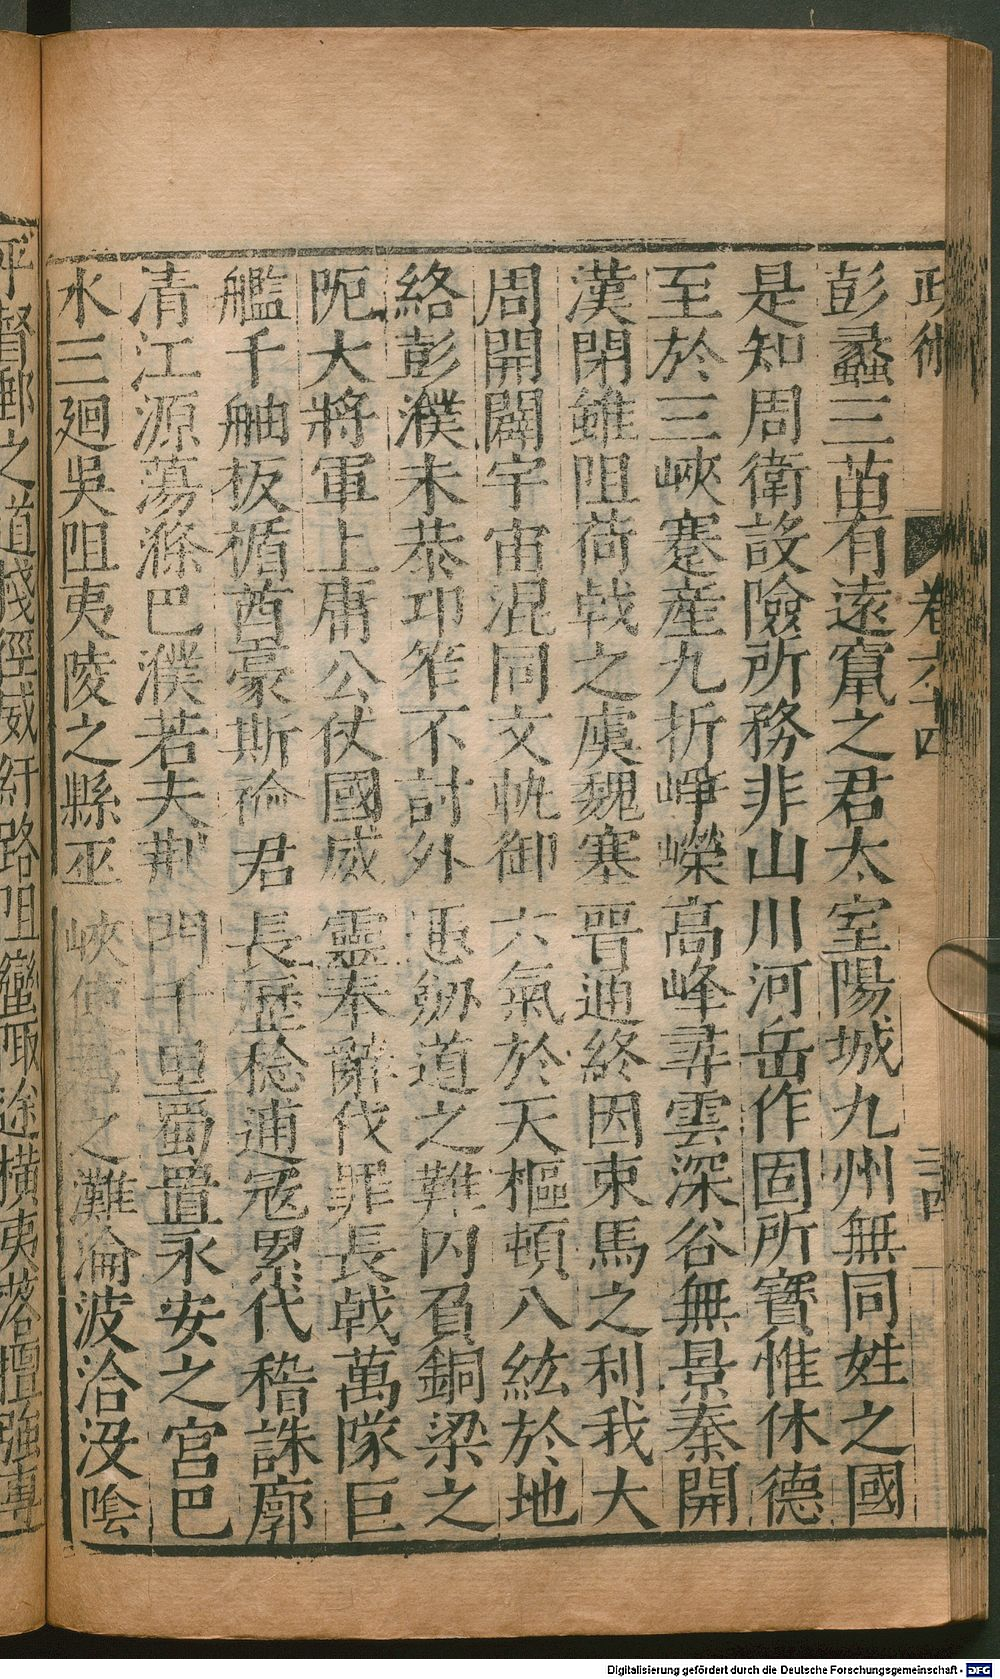 政術
卷六十四
三四
彭蠡三苗有遠竄之君太室陽城九州無同姓之國
是知周衛設險所務非山川河岳作固所寶惟休德
至於三峽蹇產九折崢嶸高峰尋雲深谷無景秦開
漢閉雖阻荷戟之虞魏塞晉通終因束馬之利我大
周開闢宇宙混同文軌御六氣於天樞頓八紘於地
絡彭濮未恭卭笮不討外恧劒道之難內負銅梁之
阨大將軍上庸公仗國威靈奉辭伐罪長戟萬隊巨
艦千舳板楯酋豪斯禽君長歷稔逋冦累代稽誅廓
清江源蕩滌巴濮若夫荆門千里蜀置永安之宮巴
水三廻吳阻夷陵之縣巫峽之灘淪波洽汲陰
之道棧徑威紆路阻蠻陬途橫夷落
Digitalisierung gefördert durch die Deutsche Forschungsgemeinschaft - DFG